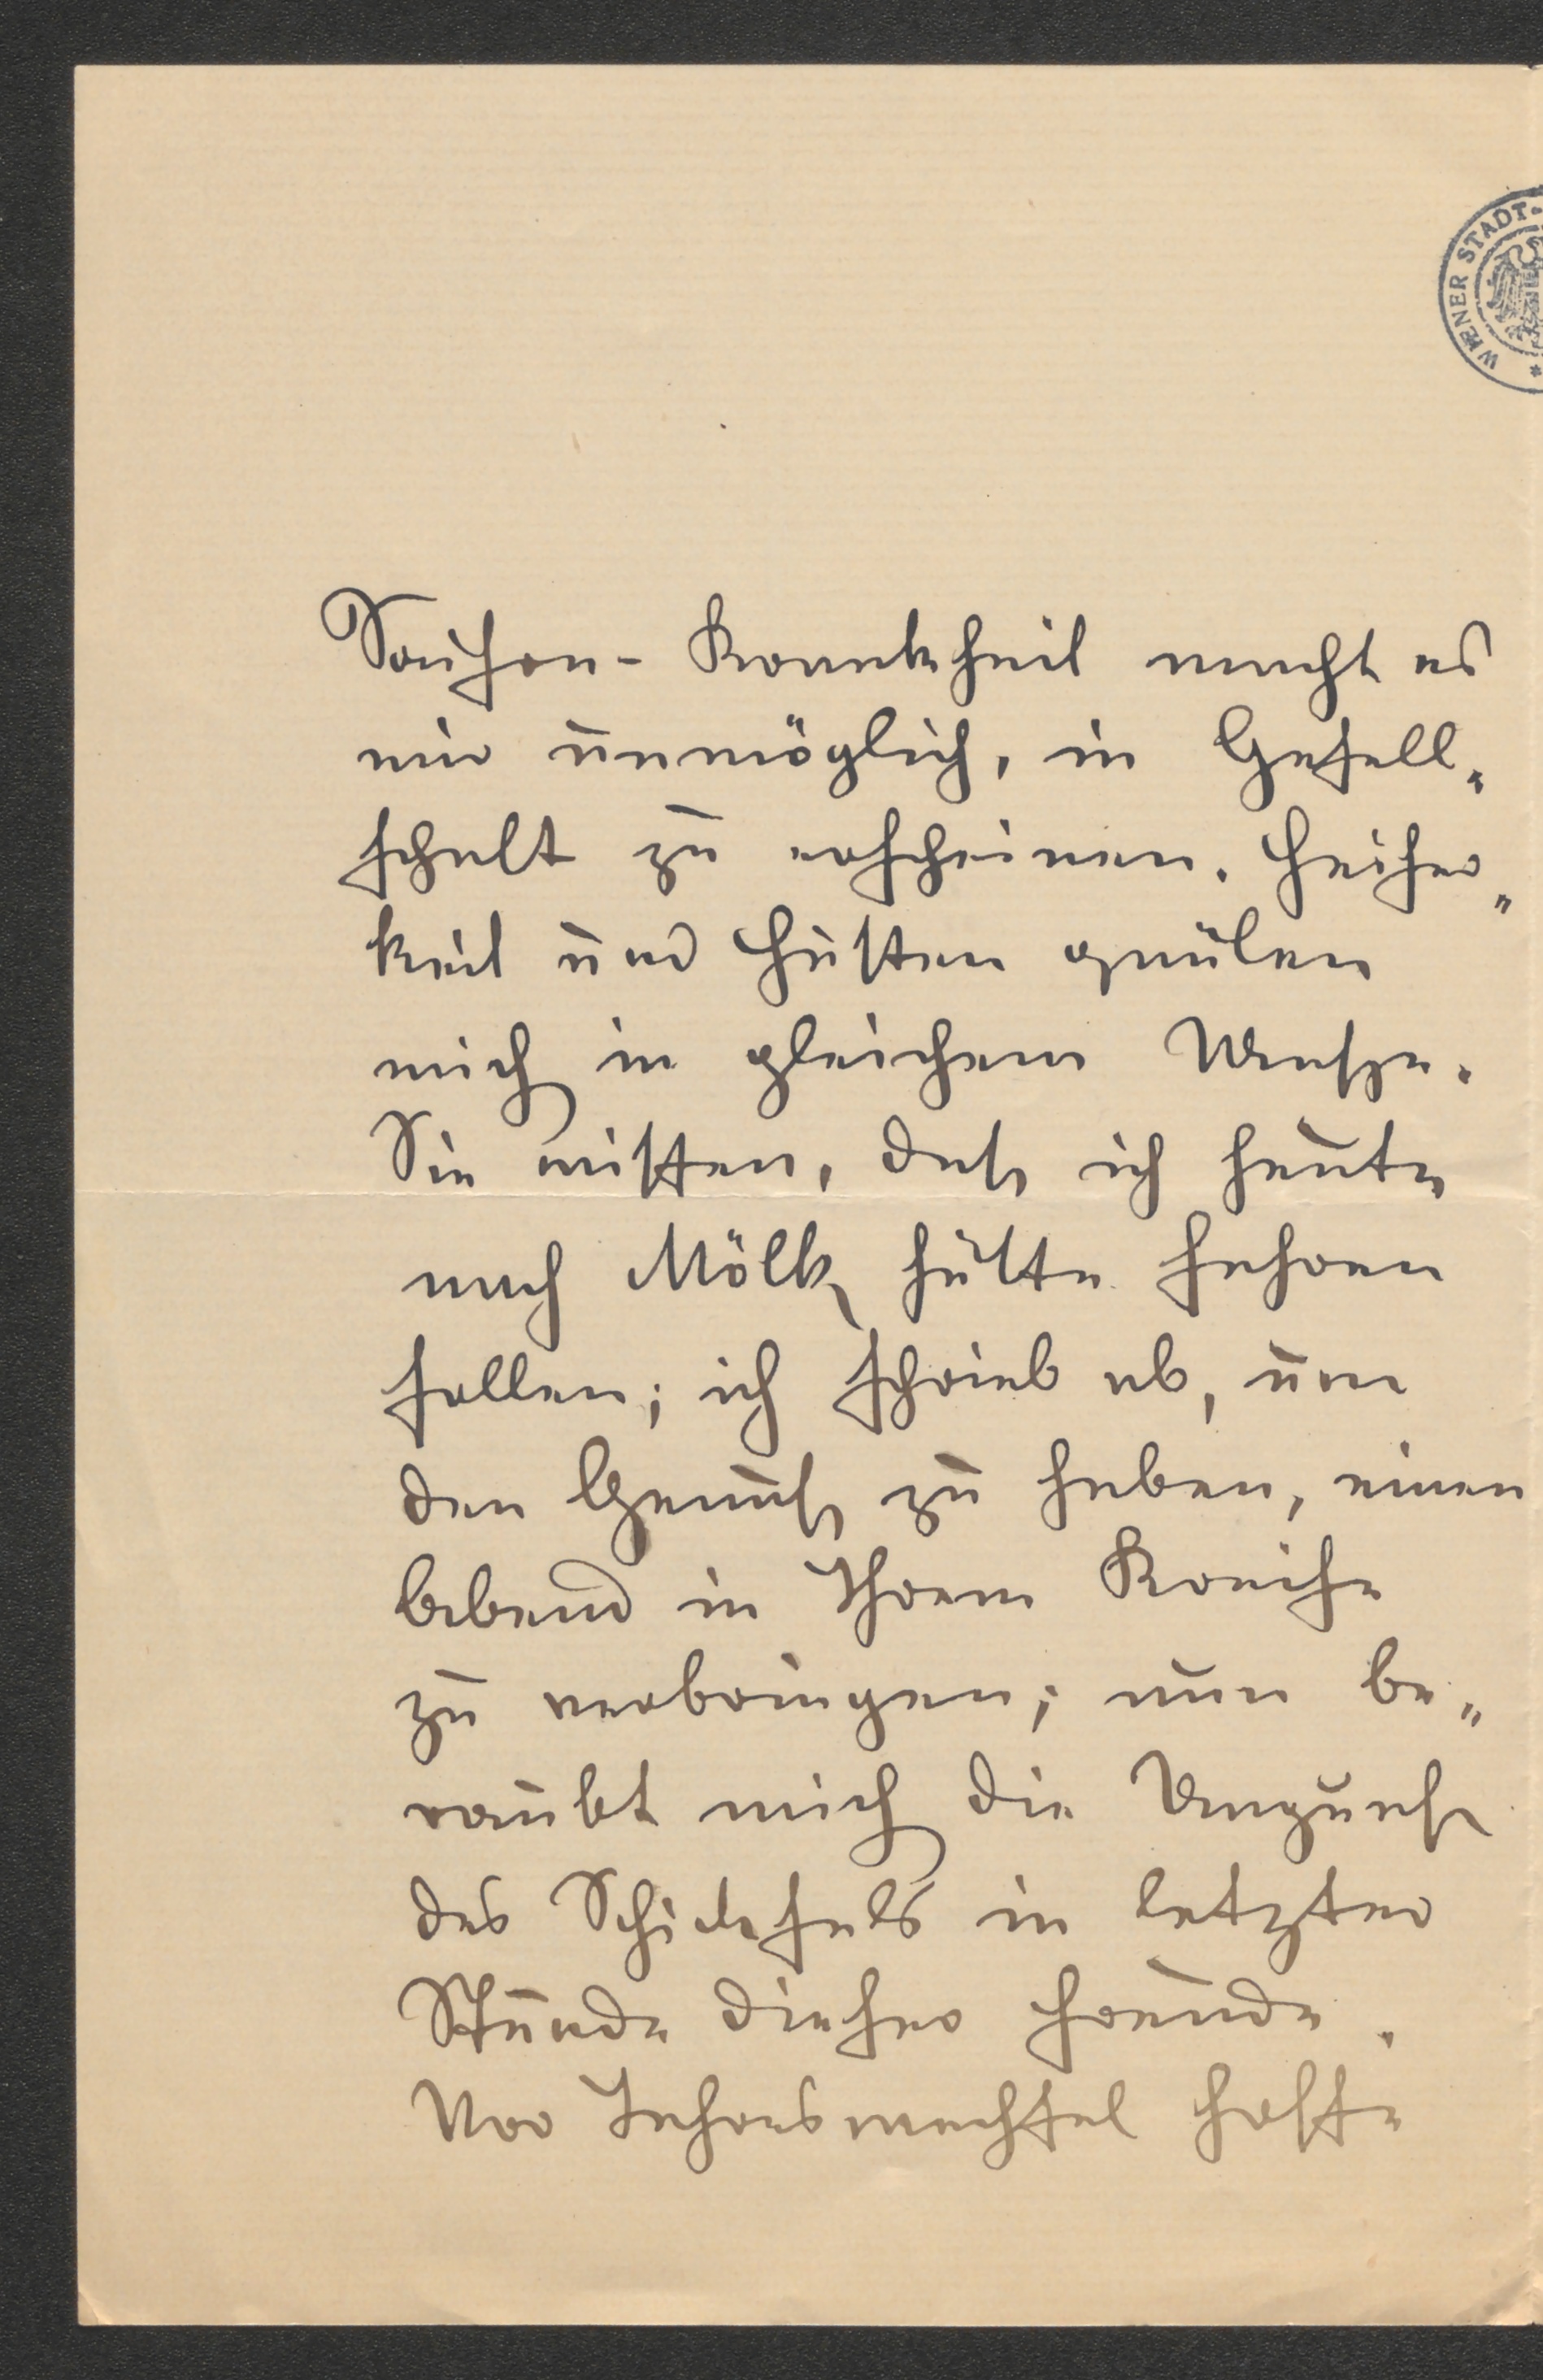 WIENER STADT-
Saison-Krankheit macht es
mir unmöglich, in Gesell„
schaft zu erscheinen. Heiser„
keit und Husten quälen
mich in gleichem Masze.
Sie wissen, dass ich heute
nach Mölk hätte fahren
sollen; ich schrieb ab, um
den Genuss zu haben, einen
Abend in Ihrem Kreise
zu verbringen; nun be„
raubt mich die
des Schicksals in letzter
Stunde dieser Freude.
Vor Jahreswechsel hoffe